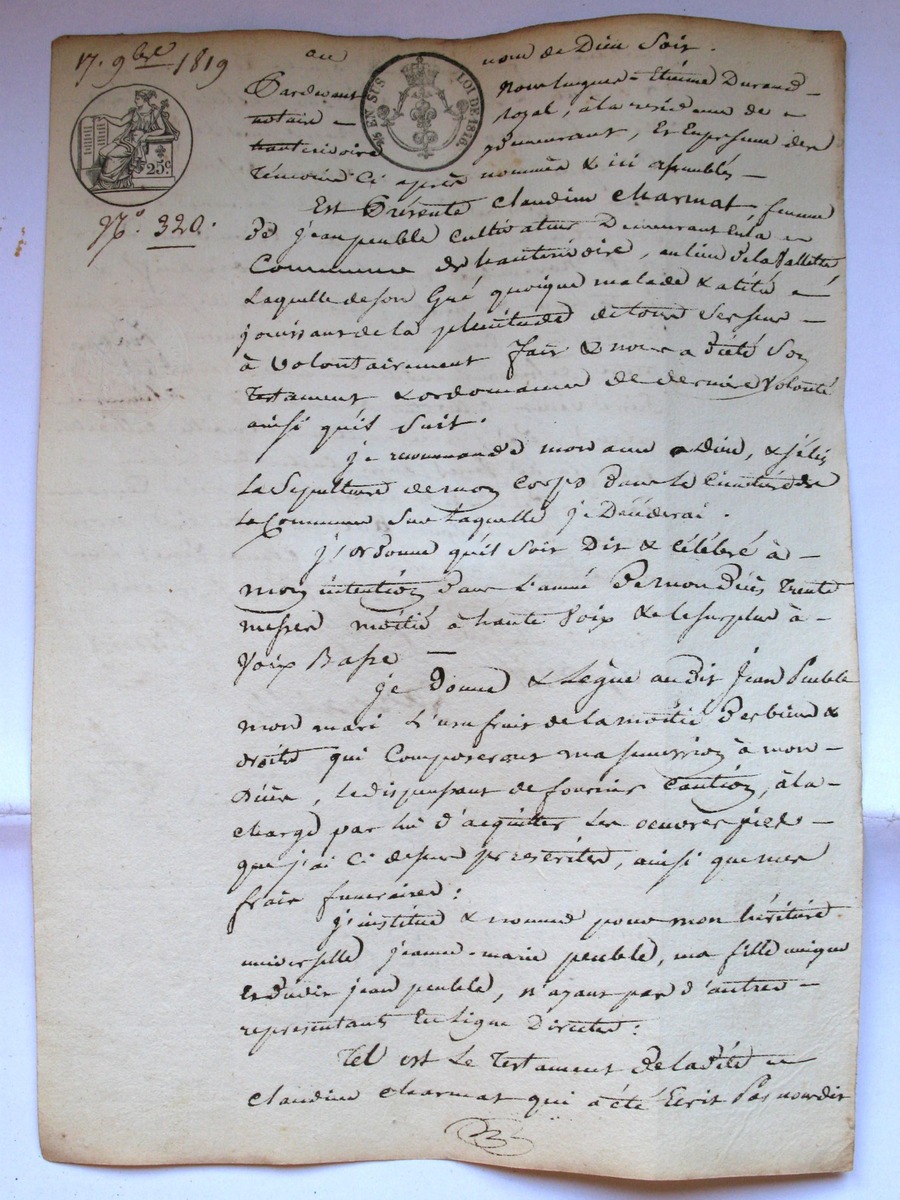 17. 9bre 1819
au nom de Dieu soit.
Pardevant nous hugues-Etienne Durand -
notaire - royal, à la residence de -
hauterivoire y demeurant, Et En presence des
Témoins Ci après nommés & ici assemblés -
25 EN SUS LOI DE 1816.
25c.
No. 320.
Est Présente Claudine Charmat femme
De jean peuble Cultivateur Demeurant En la -
Commune de hauterivoire, au lieu de la Vallette
Laquelle de son Gré quoique malade & alitée -
jouissant de la plenitude de tous ses sens -
à volontairement fait & nous a dicté Son
Testament & ordonnance de derniere Volonté
ainsi qu'il Suit.
je recommande mon ame a Dieu, & j'élis
La Sepulture de mon Corps Dans le Cimetière de
la Commune Sur Laquelle je Décéderai.
j'ordonne qu'il Soit Dit & Célébré à -
mon intention Dans L'année De mon Décès Trente
messes moitié à haute Voix & le surplus à -
Voix Basse -
je Donne & Legue audit Jean Peuble
mon mari L'usufruit de la moitié Des biens &
droits qui Composeront ma succession à mon -
Décès, Le dispensant de fournir Caution, à la -
charge par lui d'acquitter Les oeuvres pies -
que j'ai Ci dessus prescrites, ainsi que mes
frais funeraires:
j'institue & nomme pour mon héritière
universelle jeanne-marie peuble, ma fille unique
Et dudit jean peuble, n'ayant pas d'autres -
representants En Ligne Directe:
Tel est Le Testament De ladite -
Claudine Charmat qui a été Ecrit Par nousdit